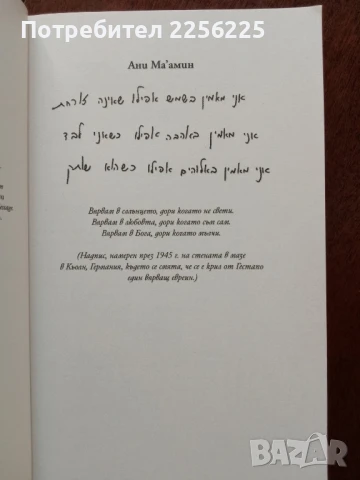 Потребител 2256295
Ани Ма'амин
אני מאמין בשמש אפילו שאינה זורחת
אני מאמין באהבה אפילו כשאני לבד
אני מאמין באלוהים אפילו כשהוא שותק
Вярвам в слънцето, дори когато не свети.
Вярвам в любовта, дори когато съм сам.
Вярвам в Бога, дори когато мълчи.
(Надпис, намерен през 1945 г. на стената в мазе
в Кьолн, Германия, където се смята, че се е крил от Гестапо
един вярващ евреин.)
bazar